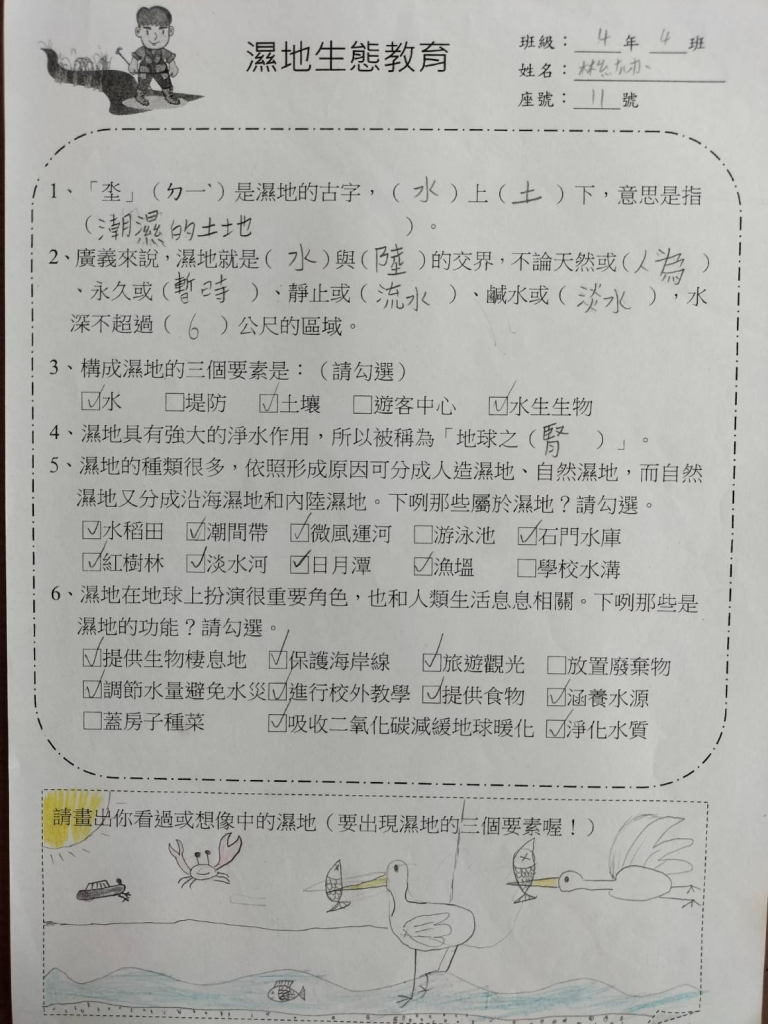 濕地生態教育
班級：4年4班
姓名：
座號：11號
1、「坔」（ㄅㄧˋ）是濕地的古字，（水）上（土）下，意思是指
（潮濕的土地）。
2、廣義來說，濕地就是（水）與（陸）的交界，不論天然或（人為）
、永久或（暫時）、靜止或（流水）、鹹水或（淡水），水
深不超過（6）公尺的區域。
3、構成濕地的三個要素是：（請勾選）
☑水 □堤防 ☑土壤 □遊客中心 ☑水生生物
4、濕地具有強大的淨水作用，所以被稱為「地球之（腎）」。
5、濕地的種類很多，依照形成原因可分成人造濕地、自然濕地，而自然
濕地又分成沿海濕地和內陸濕地。下咧那些屬於濕地？請勾選。
☑水稻田 ☑潮間帶 ☑微風運河 □游泳池 ☑石門水庫
☑紅樹林 ☑淡水河 ☑日月潭 ☑漁塭 □學校水溝
6、濕地在地球上扮演很重要角色，也和人類生活息息相關。下咧那些是
濕地的功能？請勾選。
☑提供生物棲息地 ☑保護海岸線 ☑旅遊觀光 □放置廢棄物
☑調節水量避免水災 ☑進行校外教學 ☑提供食物 ☑涵養水源
□蓋房子種菜 ☑吸收二氧化碳減緩地球暖化 ☑淨化水質
請畫出你看過或想像中的濕地（要出現濕地的三個要素喔！）